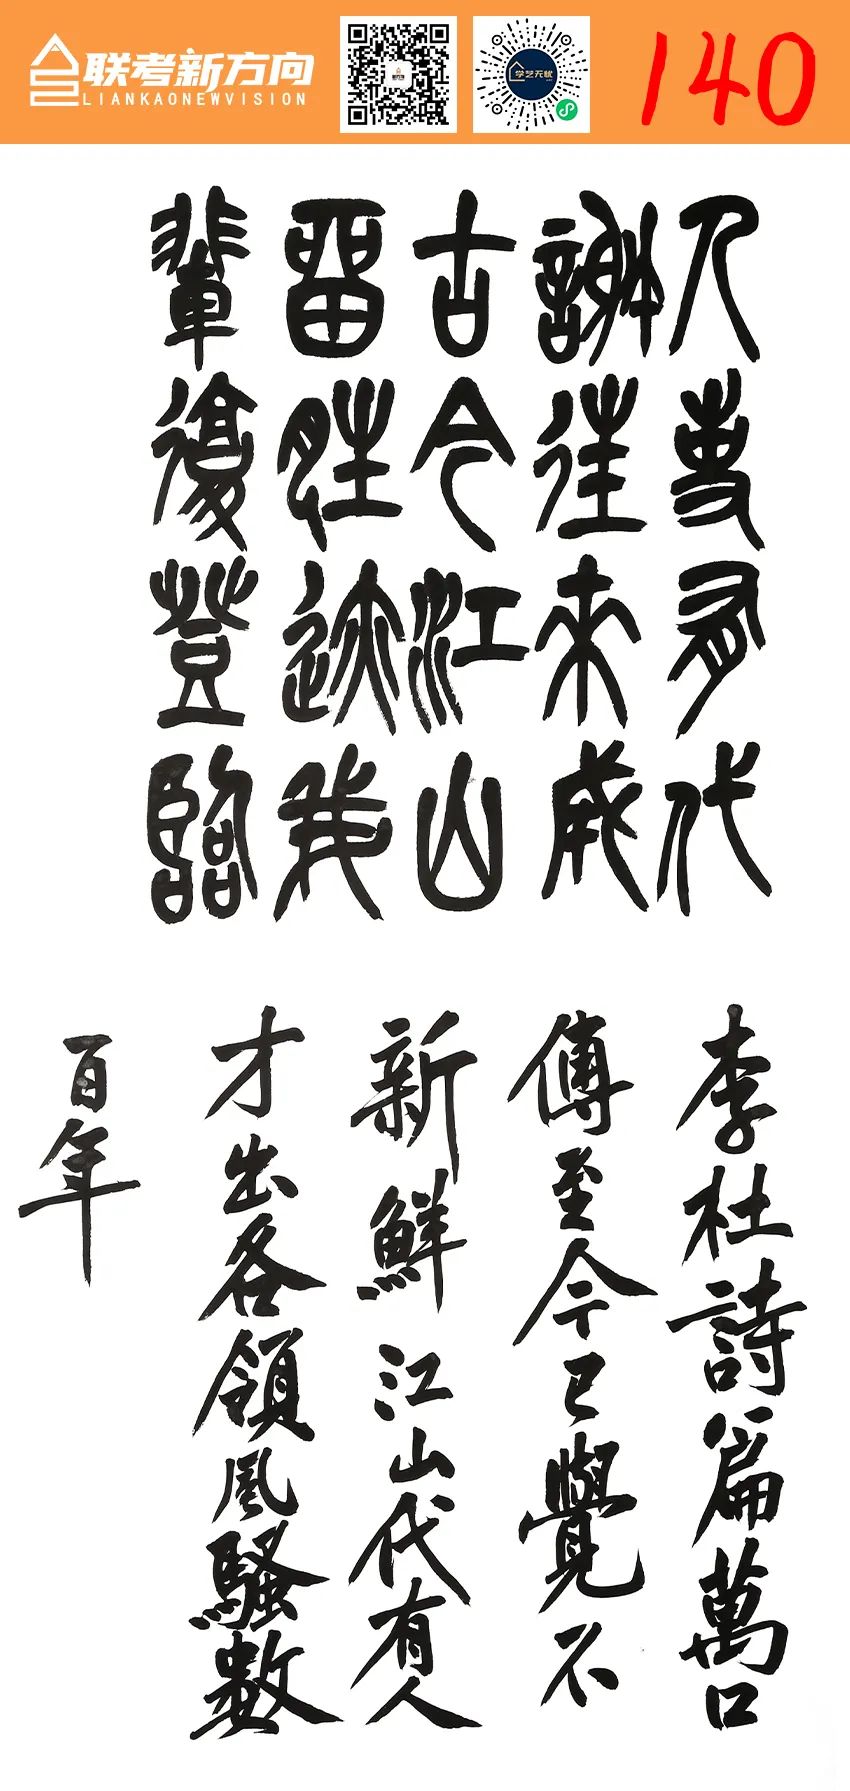 联考新方向
LIANKAONEWVISION
学艺无忧
140
人事有代
謝往來成
古今江山
留胜迹我
輩復登臨
李杜詩篇萬口
傳至今已覺不
新鮮江山代有人
才出各領風騷數
百年